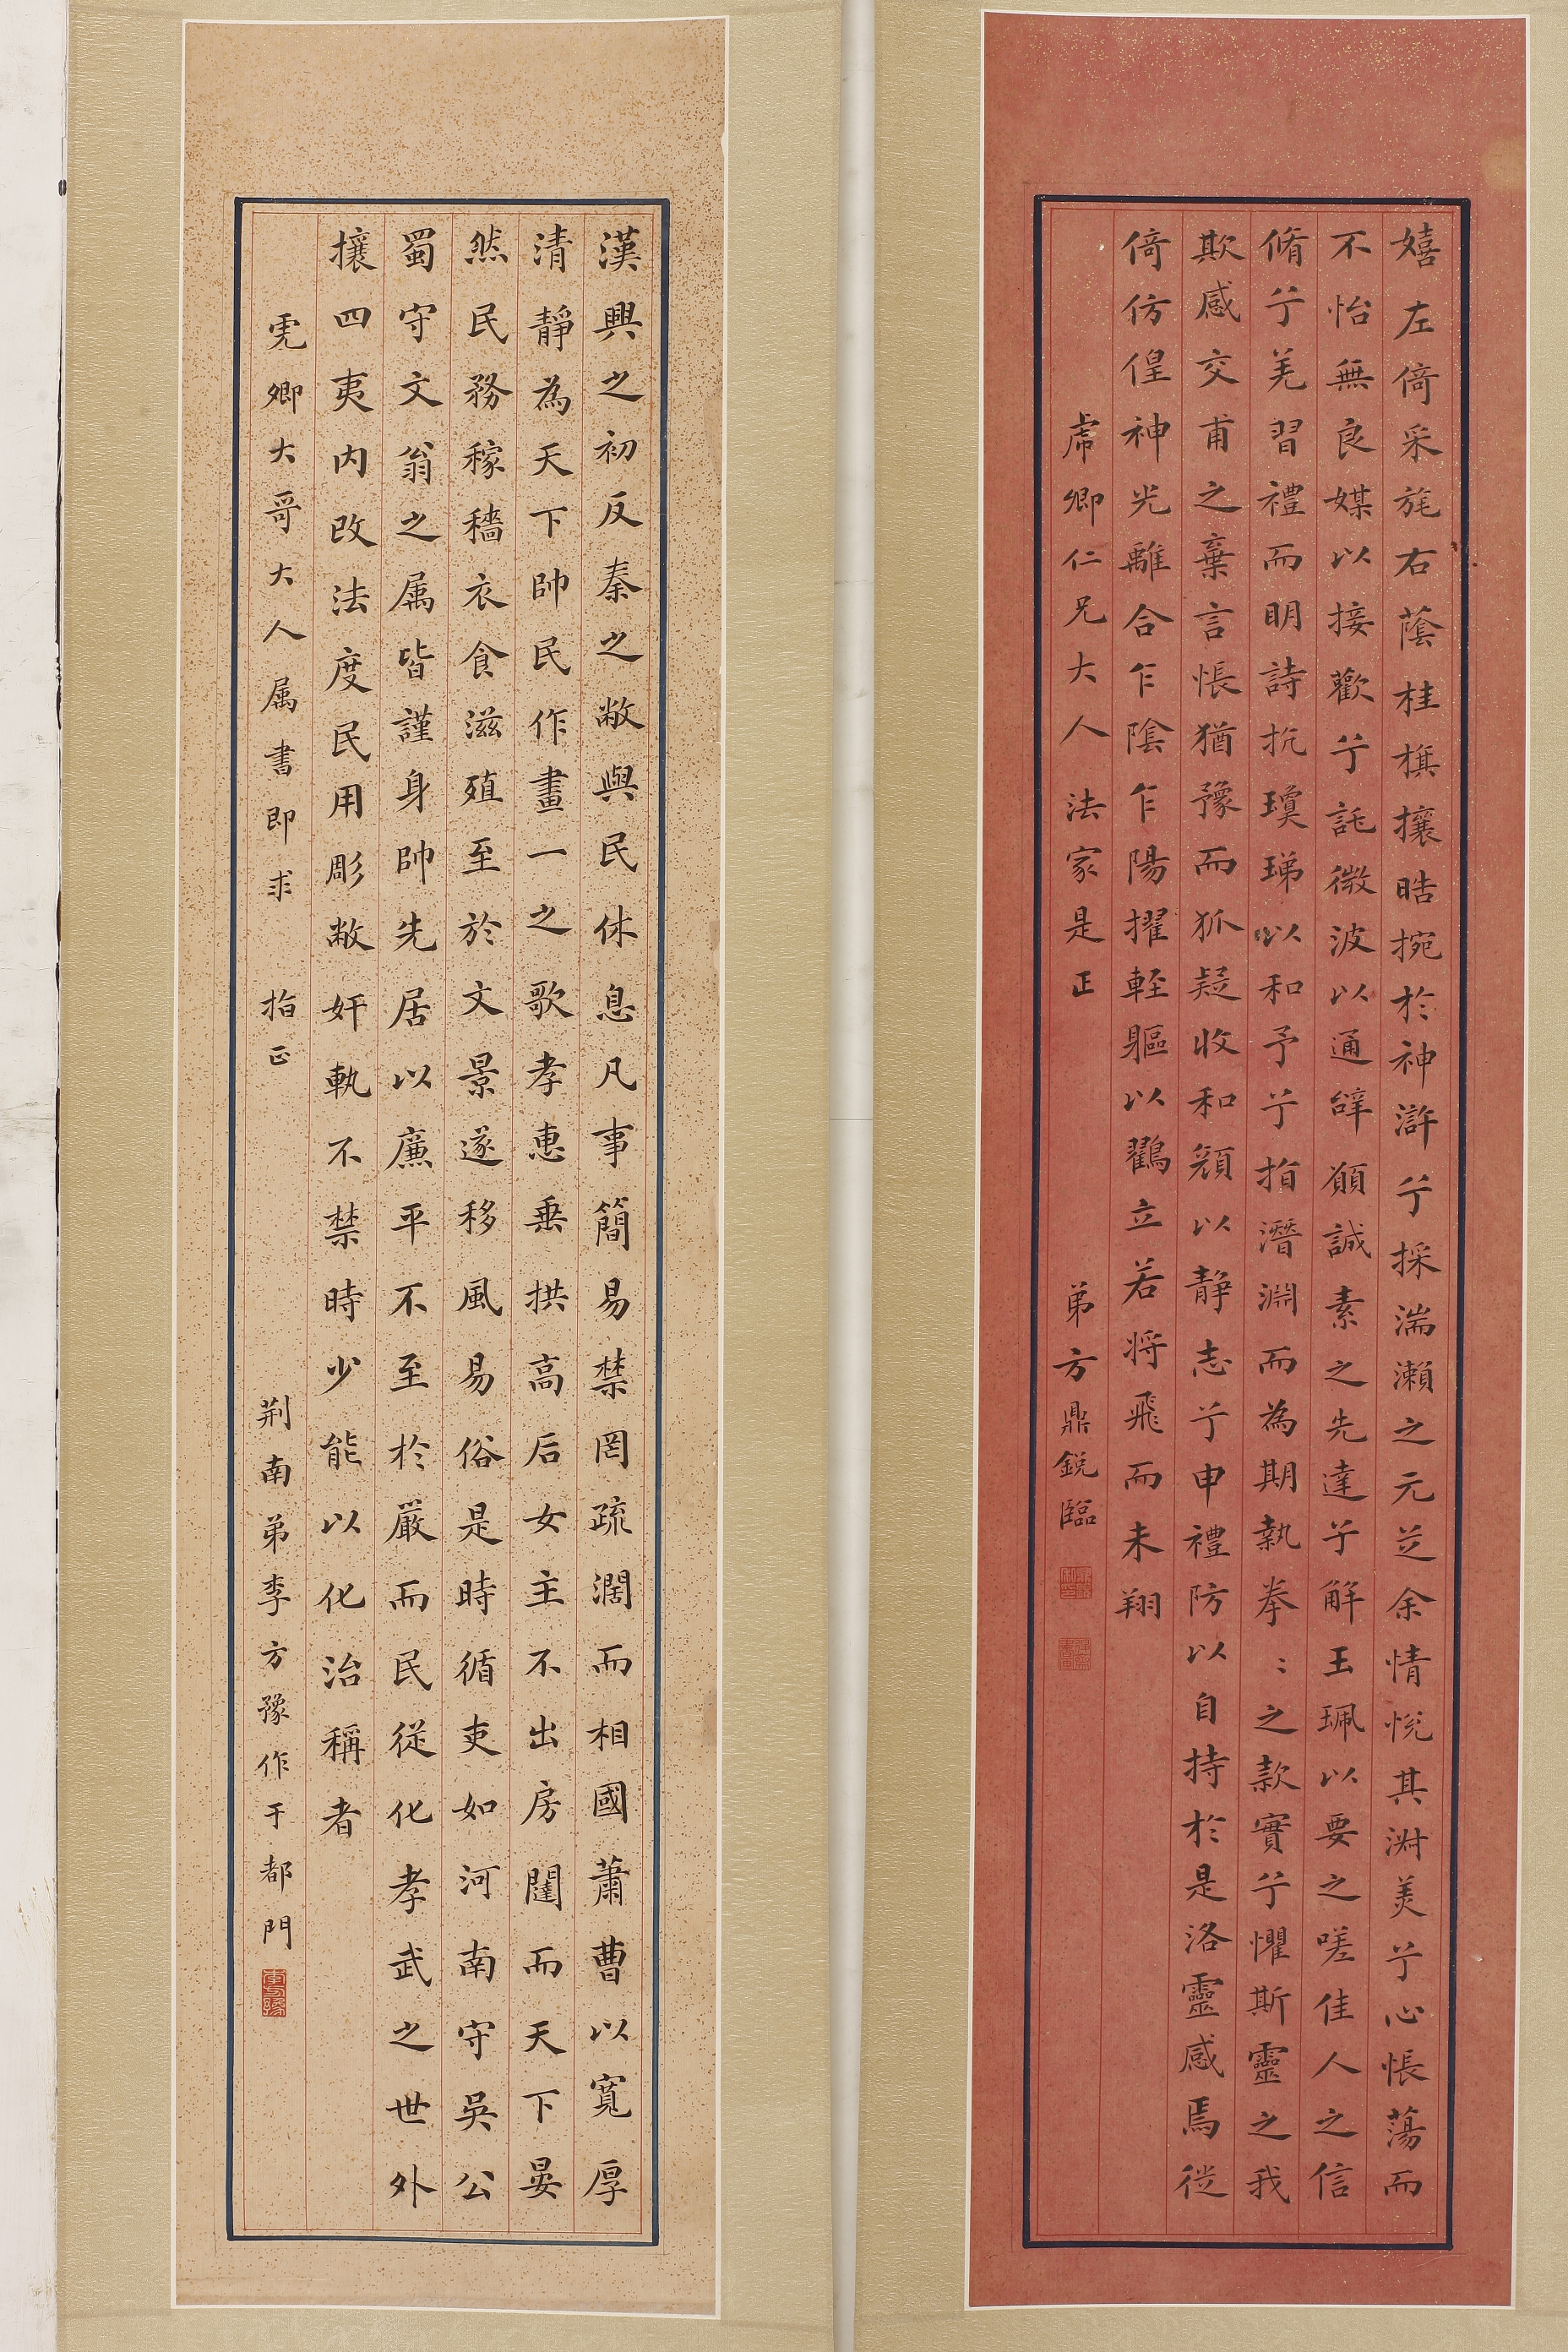 嬉左倚采旄右蔭桂旗攘晧捥於神滸兮採湍瀨之元芝余情悅其淑美兮心悵蕩而
不怡無良媒以接歡兮託微波以通辝願誠素之先達兮解玉珮以要之嗟佳人之信
脩兮羌習禮而明詩抗瓊珶以和予兮指潛淵而為期執拳〻之款實兮懼斯靈之我
欺感交甫之棄言悵猶豫而狐疑收和顏以静志兮申禮防以自持於是洛靈感焉徙
倚仿偟神光離合乍陰乍陽擢輕軀以鸛立若将飛而未翔
虎卿仁兄大人法家是正 弟方鼎銳臨
漢興之初反秦之敝與民休息凡事簡易禁罔疏濶而相國蕭曹以寬厚
清靜為天下帥民作畫一之歌孝惠垂拱高后女主不出房闥而天下晏
然民務稼穡衣食滋殖至於文景遂移風易俗是時循吏如河南守吳公
蜀守文翁之属皆謹身帥先居以廉平不至於嚴而民從化孝武之世外
攘四夷内改法度民用彫敝奸軌不禁時少能以化治稱者
虎卿大哥大人属書即求 指正 荆南弟李方豫作于都門
李方豫